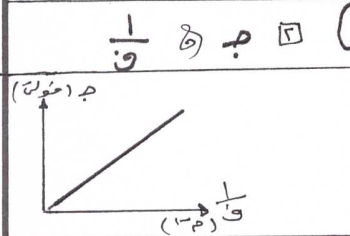 ٢ جـ ∝ ١/ف
جـ (فولت)
١/ف (م⁻¹)